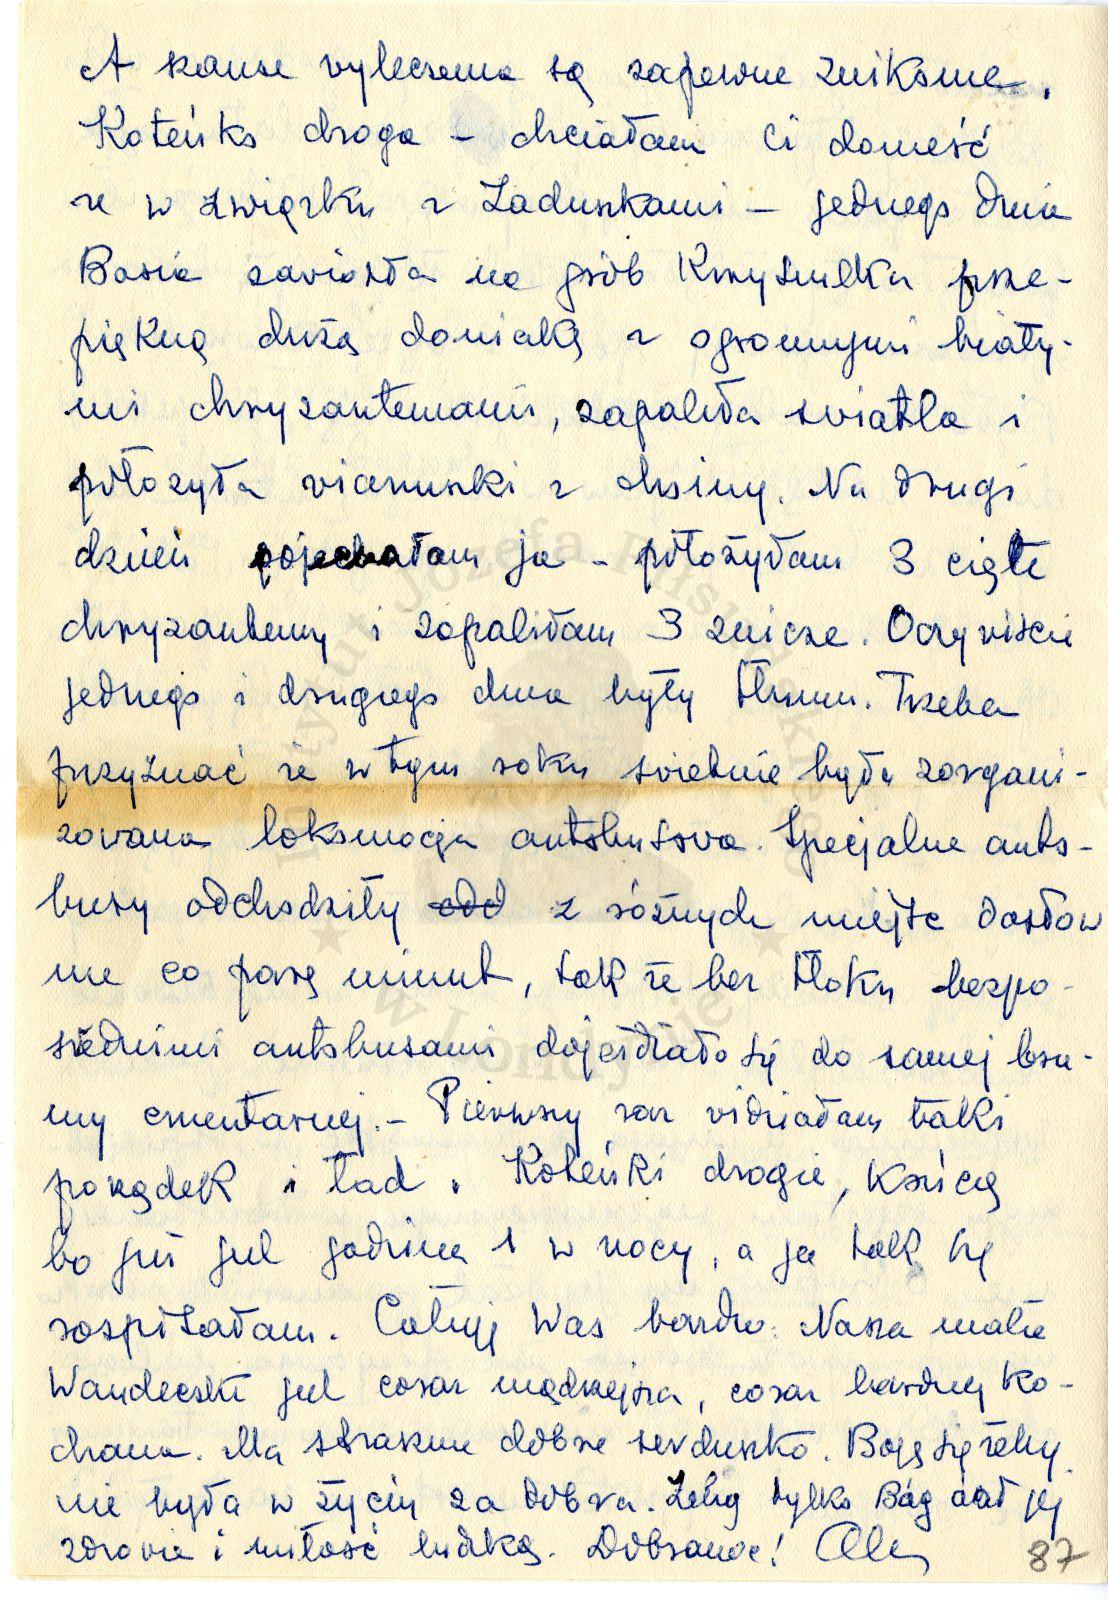 A szanse wyleczenia są zapewne znikome.
Koteńko droga – chciałam Ci donieść
że w związku z Zaduszkami – jednego dnia
Basia zawiozła na grób Krzysiulka prze-
piękną dużą doniczkę z ogromnymi biały-
mi chryzantemami, zapaliła światła i
położyła wianuszki z choiny. Na drugi
dzień pojechałam ja – położyłam 3 cięte
chryzantemy i zapaliłam 3 znicze. Oczywiście
jednego i drugiego dnia były tłumy. Trzeba
przyznać że w tym roku świetnie była zorgani-
zowana lokomocja autobusowa. Specjalne auto-
busy odchodziły z różnych miejsc dosłow
nie co parę minut, tak że bez tłoku bezpo-
średnimi autobusami dojeżdżało się do samej bra-
my cmentarnej. – Pierwszy raz widziałam taki
porządek i ład. Koteńki drogie, kończę
bo już jest godzina 1 w nocy, a ja tak się
rozpisałam. Całuję Was bardzo. Nasza mała
Wandeczka jest coraz mądrzejsza, coraz bardziej ko-
chana. Ma strasznie dobre serduszko. Boję się żeby
nie była w życiu za dobra. Żeby tylko Bóg dał jej
zdrowie i miłość ludzką. Dobranoc! Ola
87
Instytut Józefa Piłsudskiego
w Londynie